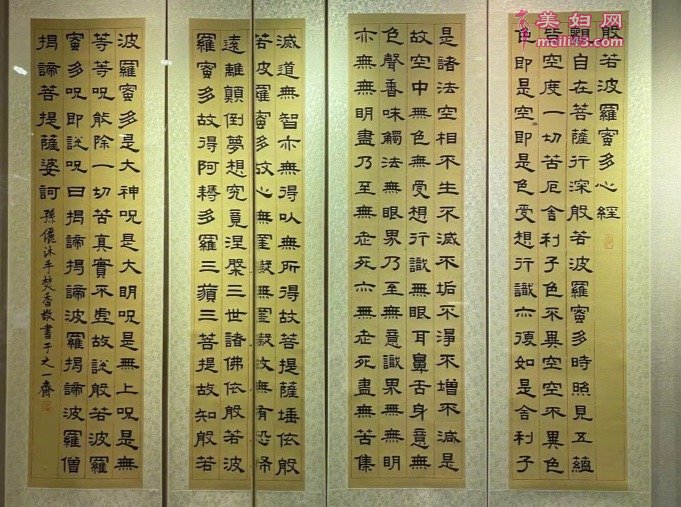 美妇网
meili43.com
般若波羅蜜多心經
觀自在菩薩行深般若波羅蜜多時照見五蘊
皆空度一切苦厄舍利子色不異空空不異色
色即是空即是色受想行識亦復如是舍利子
是諸法空相不生不滅不垢不淨不增不減是
故空中無色無受想行識無眼耳鼻舌身意無
色聲香味觸法無眼界乃至無意識界無無明
亦無無明盡乃至無老死亦無老死盡無苦集
滅道無智亦無得以無所得故菩提薩埵依般
若波羅蜜多故心無罣礙無罣礙故無有恐怖
遠離顛倒夢想究竟涅槃三世諸佛依般若波
羅蜜多故得阿耨多羅三藐三菩提故知般若
波羅蜜多是大神呪是大明呪是無上呪是無
等等呪能除一切苦真實不虛故說般若波羅
蜜多呪即說呪曰揭諦揭諦波羅揭諦波羅僧
揭諦菩提薩婆訶 孫儂沐手焚香敬書于之一齋